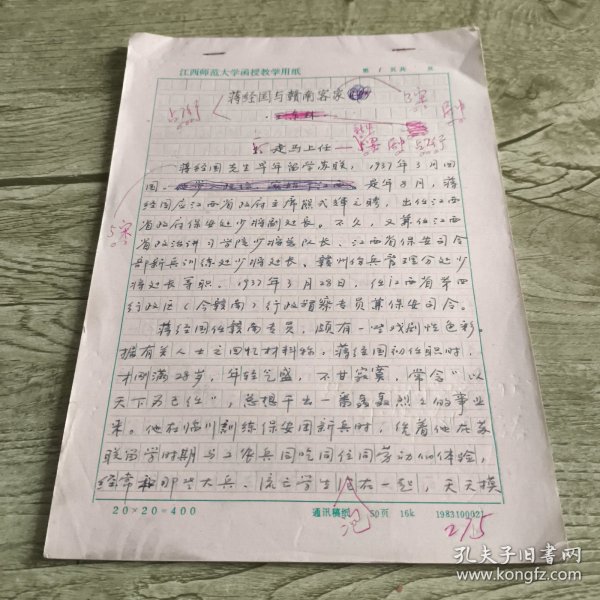 江西师范大学函授教学用纸
第 1 页共 页
蒋经国与赣南客家
走马上任
蒋经国先生早年留学苏联，1937年3月回
国。是年8月，蒋
经国应江西省政府主席熊式辉之聘，出任江西
省政府保安处少将副处长。不久，又兼任江西
省政治讲习学院少将总队长、江西省保安司令
部新兵训练处少将处长、赣州伤兵管理分处少
将处长等职。1937年3月28日，任江西省第四
行政区（今赣南）行政督察专员兼保安司令。
蒋经国任赣南专员，颇有一些戏剧性色彩。
据有关人士之回忆材料称，蒋经国初任职时，
才刚满28岁，年轻气盛，不甘寂寞，常念“以
天下为己任”，总想干出一番轰轰烈烈的事业
来。他在临川训练保安团新兵时，凭着他在苏
联留学时期与工农兵同吃同住同劳动的体验，
经常和那些大兵、流亡学生泡在一起，天天摸
20×20=400
通讯稿纸 50页 16k 1983100021
2/15
孔夫子旧书网
www.kongfz.com